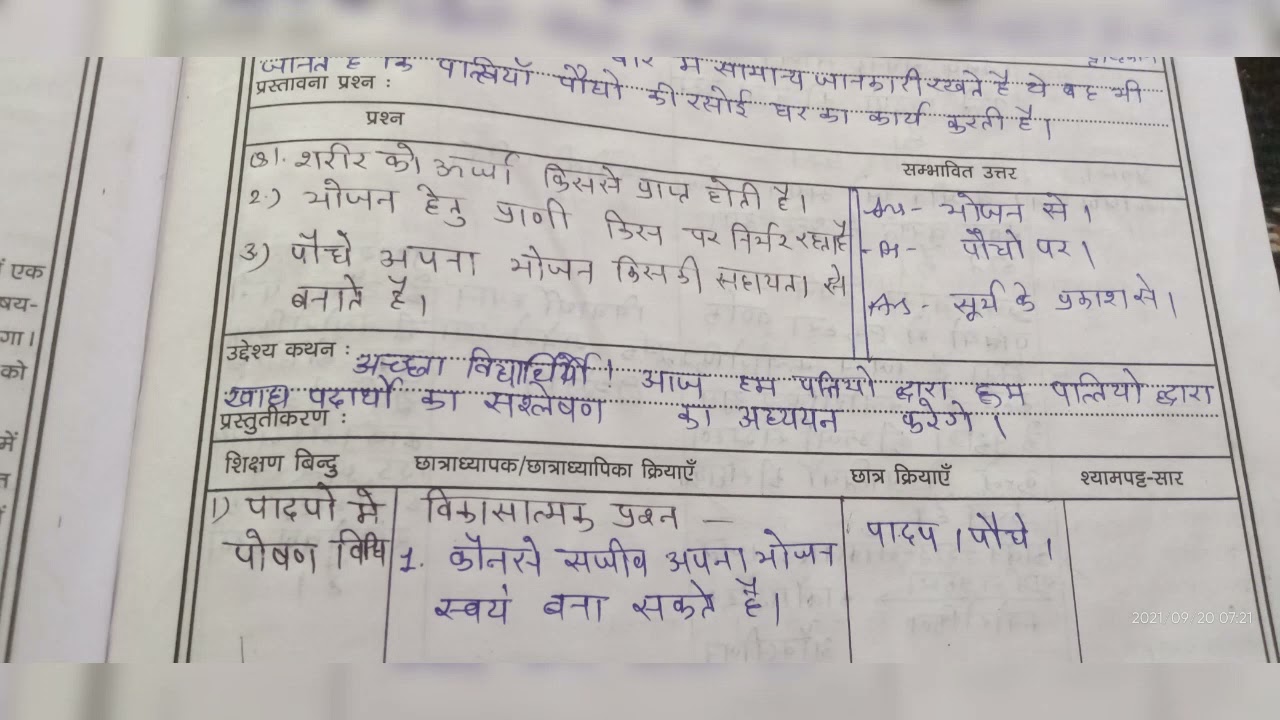 जानते है कि पात्तियाँ पौधो की रसोई घर का कार्य करती है।
में सामान्य जानकारी रखते है ये वह भी
प्रस्तावना प्रश्न :
प्रश्न
सम्भावित उत्तर
शरीर को ऊर्जा किससे प्राप्त होती है।
Ans - भोजन से।
2.) भोजन हेतु प्राणी किस पर निर्भर रहता है
पौधो पर।
3) पौधे अपना भोजन किसकी सहायता से
बनाते है।
Ans - सूर्य के प्रकाश से।
उद्देश्य कथन :
अच्छा विद्यार्थियों! आज हम पत्तियो द्वारा हम पात्तियो द्वारा
खाद्य पदार्थो का सश्लेषण का अध्ययन करेगे।
प्रस्तुतीकरण :
शिक्षण बिन्दु छात्राध्यापक/छात्राध्यापिका क्रियाएँ छात्र क्रियाएँ श्यामपट्ट-सार
1) पादपो मे विकासात्मक प्रश्न — पादप । पौधे।
पोषण विधि 1. कौनसे सजीव अपना भोजन
स्वयं बना सकते है।
एक
षय-
गा।
को
में
2021/09/20 07:21